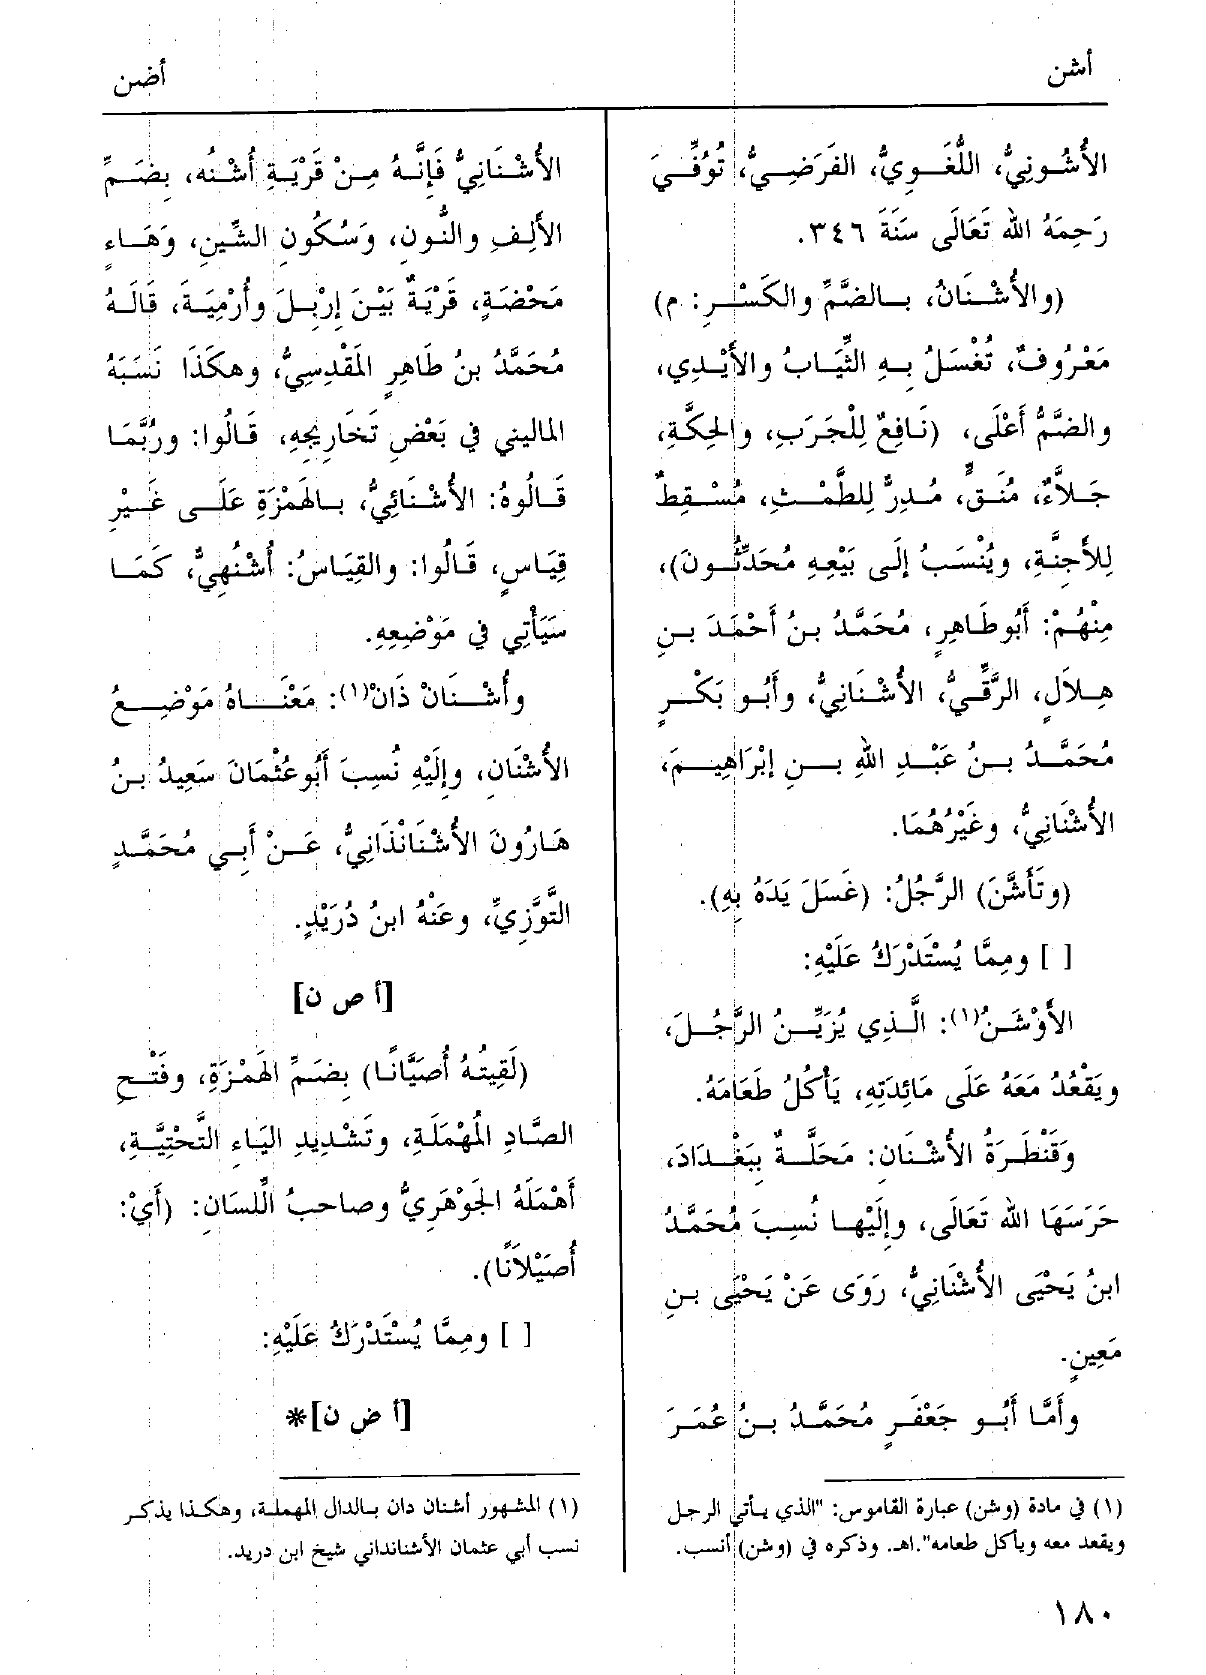 أشن
أضن
الأُشُونِيُّ، اللُّغَوِيُّ، الفَرَضِيُّ، تُوُفِّيَ
رَحِمَهُ الله تَعَالَى سَنَةَ ٣٤٦.
(والأُشْنَانُ، بالضَّمِّ والكَسْرِ: م)
مَعْرُوفٌ، تُغْسَلُ بِهِ الثِّيَابُ والأَيْدِي،
والضَّمُّ أَعْلَى، (نَافِعٌ لِلْجَرَبِ، والحِكَّةِ،
جَلاَّءٌ، مُنَقٍّ، مُدِرٌّ لِلطَّمْثِ، مُسْقِطٌ
لِلأَجِنَّةِ، ويُنْسَبُ إلَى بَيْعِهِ مُحَدِّثُونَ)،
مِنْهُمْ: أَبُو طَاهِرٍ، مُحَمَّدُ بنُ أَحْمَدَ بنِ
هِلاَلٍ، الرَّقِّيُّ، الأُشْنَانِيُّ، وأَبُو بَكْرٍ
مُحَمَّدُ بنُ عَبْدِ اللهِ بنِ إبْرَاهِيمَ،
الأُشْنَانِيُّ، وغَيْرُهُمَا.
(وتَأَشَّنَ) الرَّجُلُ: (غَسَلَ يَدَهُ بِهِ).
[ ] ومِمَّا يُسْتَدْرَكُ عَلَيْهِ:
الأَوْشَنُ(١): الَّذِي يُزَيِّنُ الرَّجُلَ،
ويَقْعُدُ مَعَهُ عَلَى مَائِدَتِهِ، يَأْكُلُ طَعَامَهُ.
وَقَنْطَرَةُ الأُشْنَانِ: مَحَلَّةٌ بِبَغْدَادَ،
حَرَسَهَا الله تَعَالَى، وإلَيْهَا نُسِبَ مُحَمَّدُ
ابنُ يَحْيَى الأُشْنَانِيُّ، رَوَى عَنْ يَحْيَى بنِ
مَعِينٍ.
وأَمَّا أَبُو جَعْفَرٍ مُحَمَّدُ بنُ عُمَرَ
(١) في مادة (وشن) عبارة القاموس: "الذي يأتي الرجل
ويقعد معه ويأكل طعامه".اهـ. وذكره في (وشن) أنسب.
الأُشْنَانِيُّ فَإِنَّهُ مِنْ قَرْيَةِ أُشْنُه، بِضَمِّ
الأَلِفِ والنُّونِ، وَسُكُونِ الشِّينِ، وَهَاءٍ
مَحْضَةٍ، قَرْيَةٌ بَيْنَ إرْبِلَ وأُرْمِيَةَ، قَالَهُ
مُحَمَّدُ بنُ طَاهِرٍ المَقْدِسِيُّ، وهكَذَا نَسَبَهُ
الماليني في بَعْضِ تَخَارِيجِهِ، قَالُوا: ورُبَّمَا
قَالُوهُ: الأُشْنَائِيُّ، بالهَمْزَةِ عَلَى غَيْرِ
قِيَاسٍ، قَالُوا: والقِيَاسُ: أُشْنُهِيُّ، كَمَا
سَيَأْتِي في مَوْضِعِهِ.
وأُشْنَانْ ذَانْ(١): مَعْنَاهُ مَوْضِعُ
الأُشْنَانِ، وإلَيْهِ نُسِبَ أَبُو عُثْمَانَ سَعِيدُ بنُ
هَارُونَ الأُشْنَانْذَانِيُّ، عَنْ أَبِي مُحَمَّدٍ
التَّوَّزِيِّ، وعَنْهُ ابنُ دُرَيْدٍ.
[أ ص ن]
(لَقِيتُهُ أُصَيَّانًا) بِضَمِّ الهَمْزَةِ، وفَتْحِ
الصَّادِ المُهْمَلَةِ، وتَشْدِيدِ اليَاءِ التَّحْتِيَّةِ،
أَهْمَلَهُ الجَوْهَرِيُّ وصاحبُ اللِّسَانِ: (أَيْ:
أُصَيْلاَنًا).
[ ] ومِمَّا يُسْتَدْرَكُ عَلَيْهِ:
[أ ض ن]*
(١) المشهور أشنان دان بالدال المهملة، وهكذا يذكر
نسب أبي عثمان الأشنانداني شيخ ابن دريد.
١٨٠